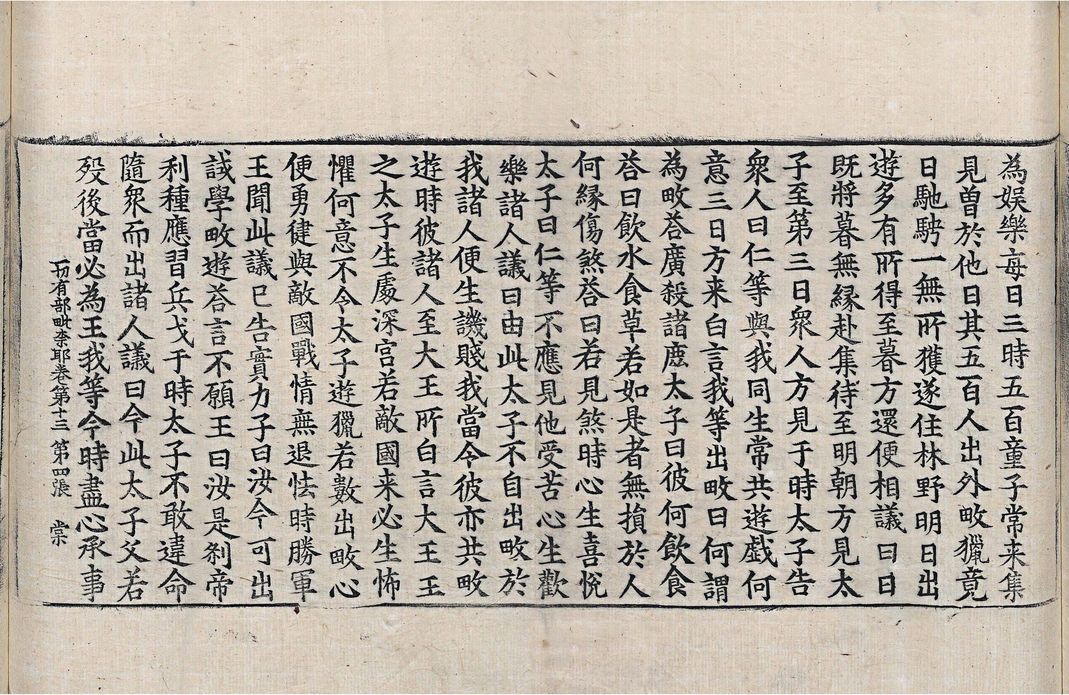 為娛樂每日三時五百童子常来集
見曽於他日其五百人出外畋獵竟
日馳騁一無所獲遂住林野明日出
遊多有所得至暮方還便相議曰日
既將暮無縁赴集待至明朝方見太
子至第三日衆人方見于時太子告
衆人曰仁等與我同生常共遊戲何
意三日方来白言我等出畋曰何謂
為畋荅廣殺諸鹿太子曰彼何飲食
荅曰飲水食草若如是者無損於人
何縁傷煞荅曰若見煞時心生喜恱
太子曰仁等不應見他受苦心生歡
樂諸人議曰由此太子不自出畋於
我諸人便生譏賤我當令彼亦共畋
遊時彼諸人至大王所白言大王王
之太子生處深宮若敵國来必生怖
懼何意不令太子遊獵若數出畋心
便勇健與敵國戰情無退怯時勝軍
王聞此議已告實力子曰汝今可出
誡學畋遊荅言不願王曰汝是刹帝
利種應習兵戈于時太子不敢違命
隨衆而出諸人議曰今此太子父若
殁後當必為王我等今時盡心承事
一切有部毗奈耶卷第十三 第四張 常